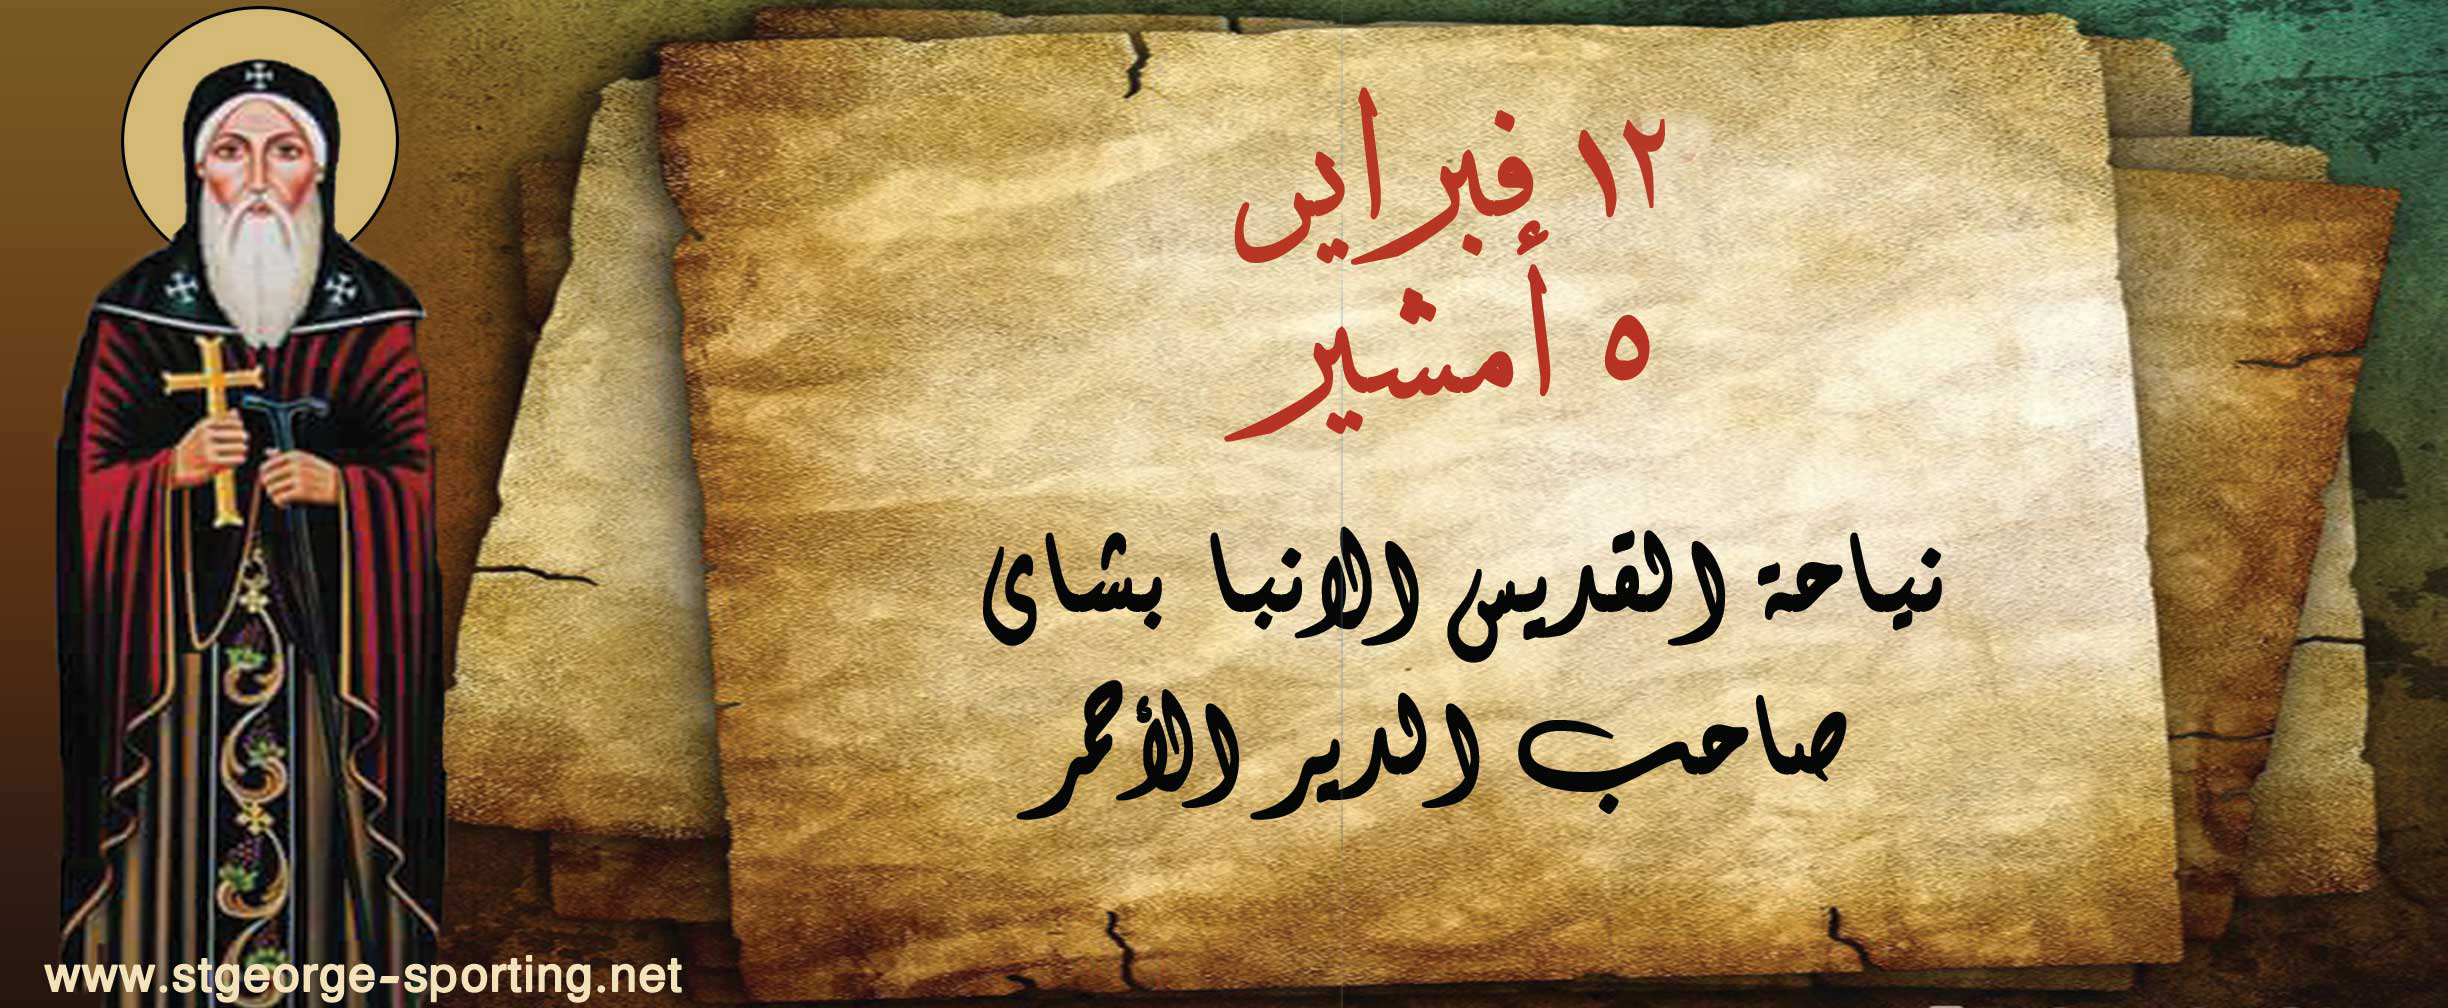 ١٢ فبراير
٥ أمشير
نياحة القديس الانبا بشاى
صاحب الدير الأحمر
www.stgeorge-sporting.net